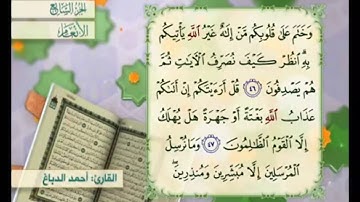 الجزء السابع
الأنعام
وَخَتَمَ عَلَىٰ قُلُوبِكُم مَّنْ إِلَٰهٌ غَيْرُ اللَّهِ يَأْتِيكُم
بِهِ ۗ انظُرْ كَيْفَ نُصَرِّفُ الْآيَاتِ ثُمَّ
هُمْ يَصْدِفُونَ ٤٦ قُلْ أَرَءَيْتَكُمْ إِنْ أَتَىٰكُمْ
عَذَابُ اللَّهِ بَغْتَةً أَوْ جَهْرَةً هَلْ يُهْلَكُ
إِلَّا الْقَوْمُ الظَّالِمُونَ ٤٧ وَمَا نُرْسِلُ
الْمُرْسَلِينَ إِلَّا مُبَشِّرِينَ وَمُنذِرِينَ ۖ
القارئ: أحمد الدباغ